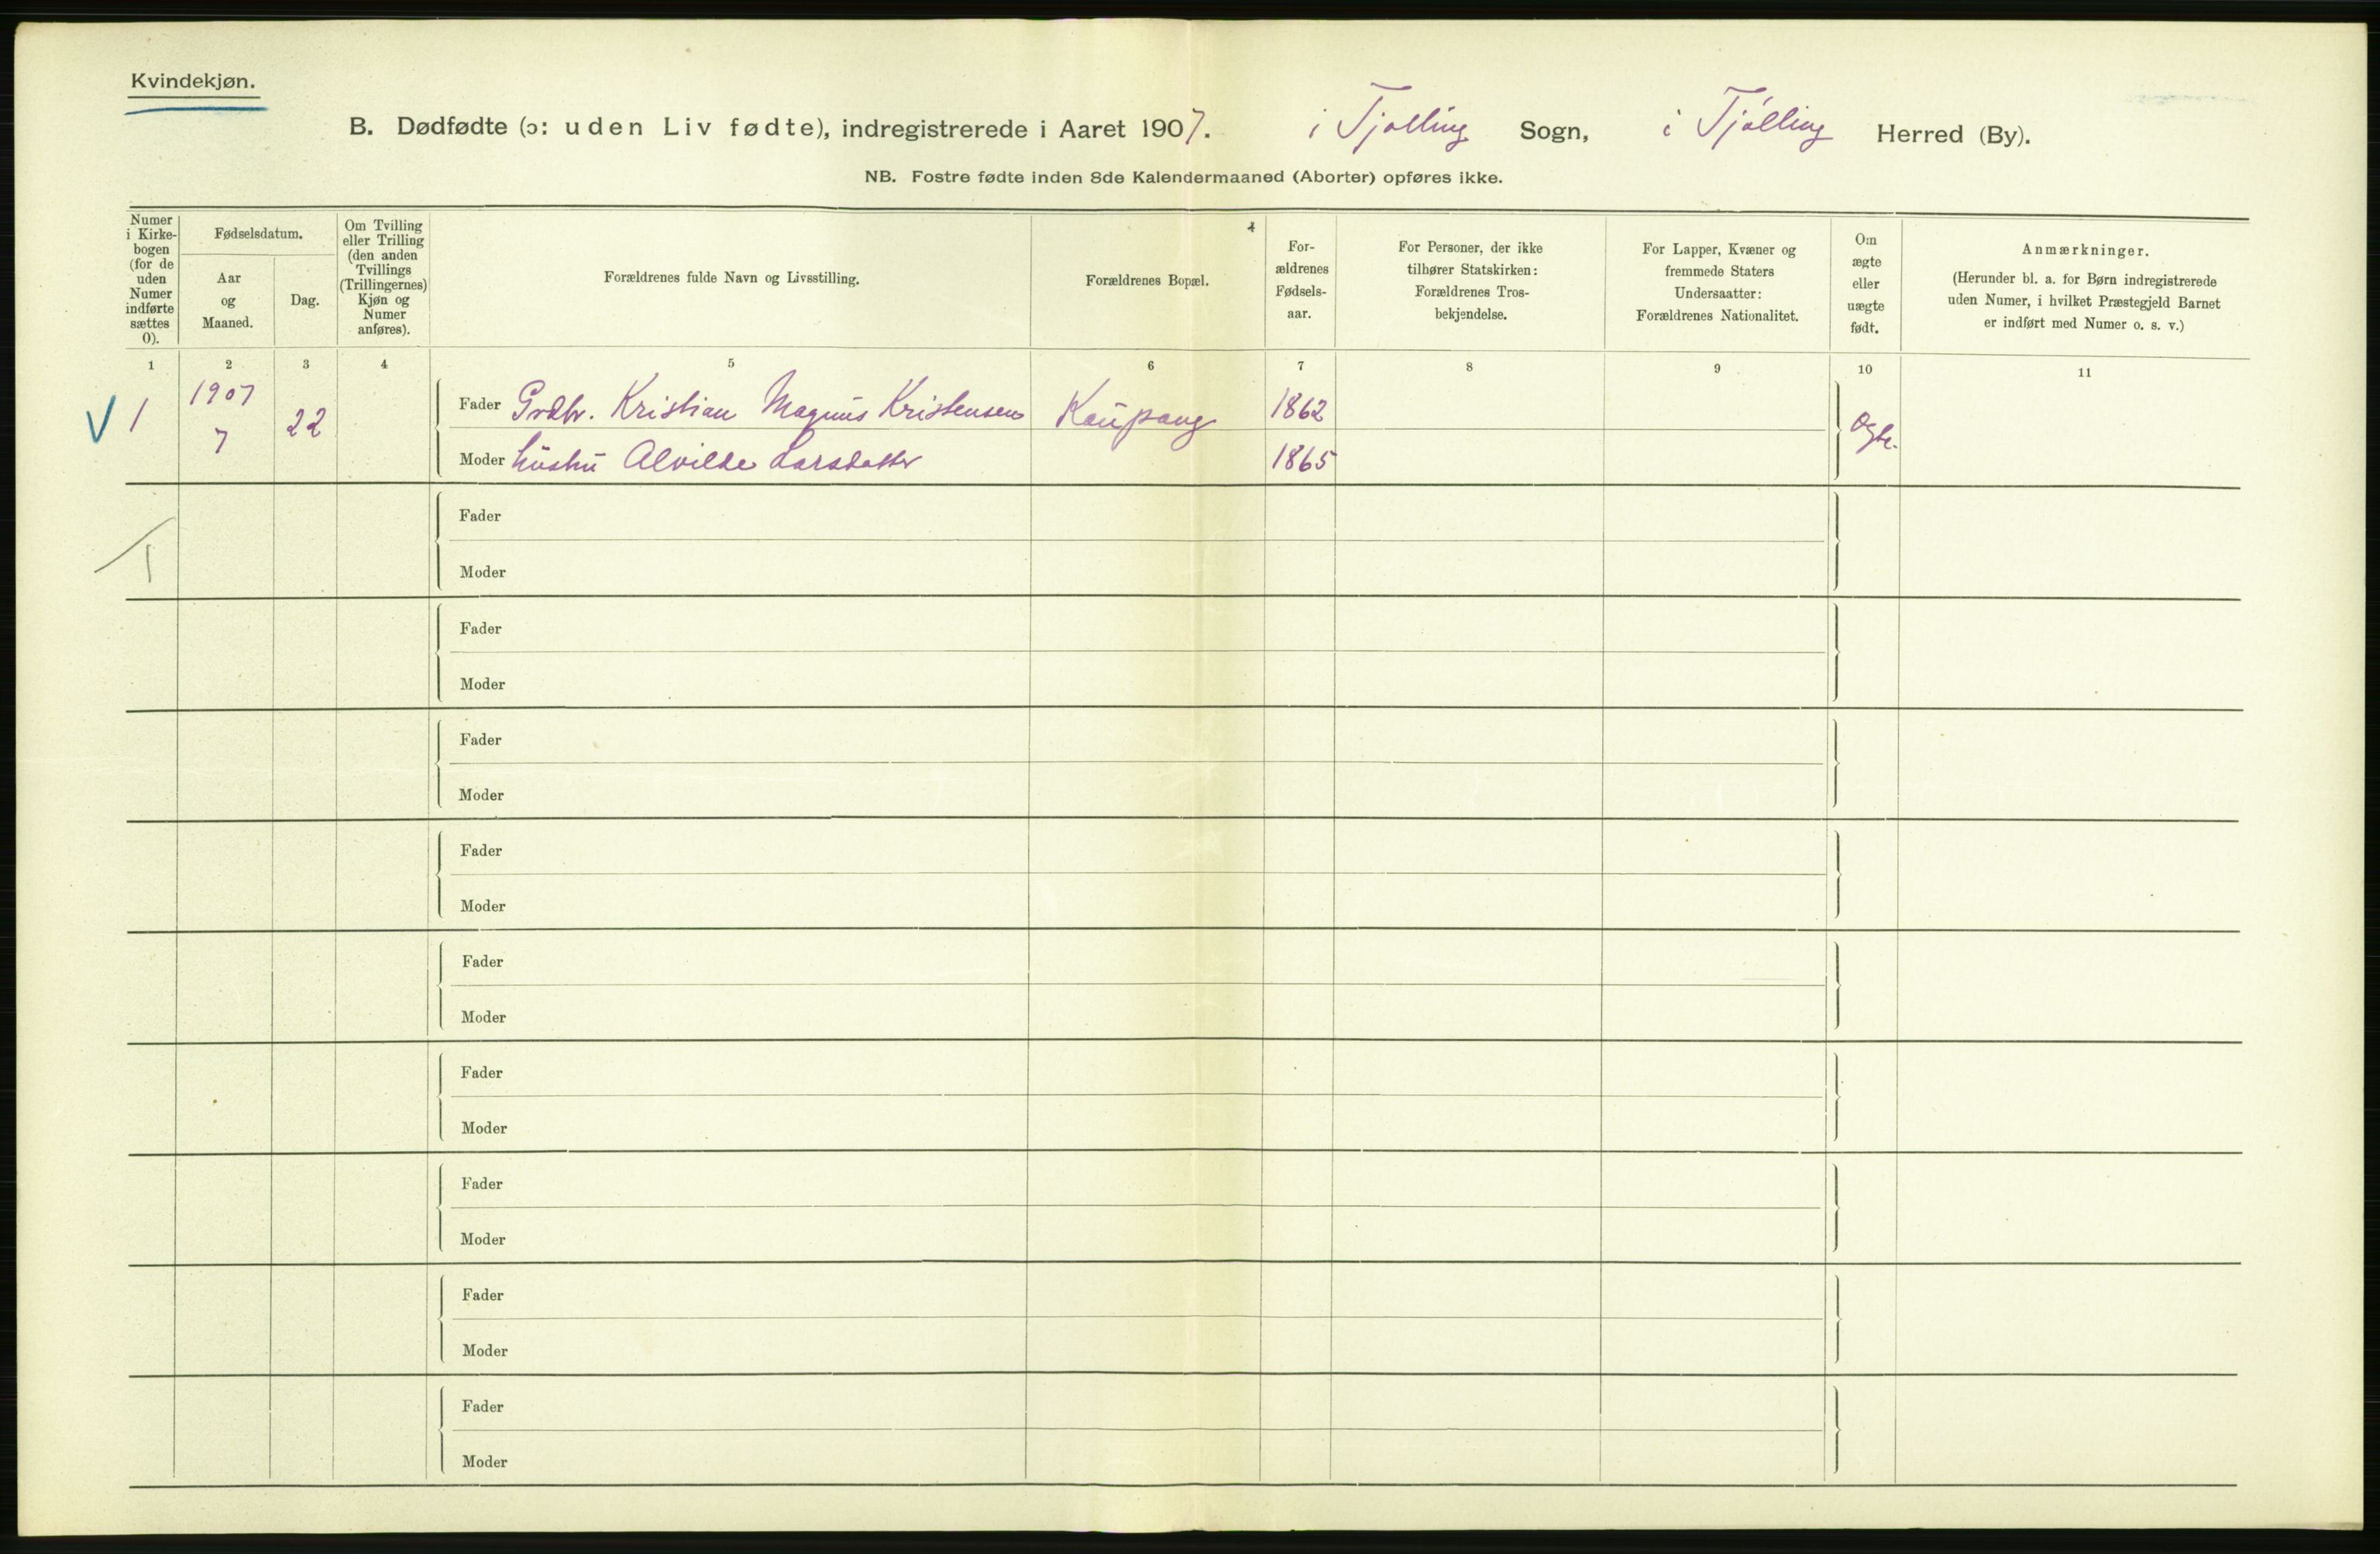 Kvindekjøn.
B. Dødfødte (ɔ: uden Liv fødte), indregistrerede i Aaret 1907. i Tjølling Sogn, i Tjølling Herred (By).
NB. Fostre fødte inden 8de Kalendermaaned (Aborter) opføres ikke.
Numer
i Kirke-
bogen
(for de
uden
Numer
indførte
sættes
0).
Fødselsdatum.
Aar
og
Maaned.
Dag.
Om Tvilling
eller Trilling
(den anden
Tvillings
(Trillingernes)
Kjøn og
Numer
anføres).
Forældrenes fulde Navn og Livsstilling.
Forældrenes Bopæl.
4
For-
ældrenes
Fødsels-
aar.
For Personer, der ikke
tilhører Statskirken:
Forældrenes Tros-
bekjendelse.
For Lapper, Kvæner og
fremmede Staters
Undersaatter:
Forældrenes Nationalitet.
Om
ægte
eller
uægte
født.
Anmærkninger.
(Herunder bl. a. for Børn indregistrerede
uden Numer, i hvilket Præstegjeld Barnet
er indført med Numer o. s. v.)
1 2 3 4 5 6 7 8 9 10 11
V 1 1907 7 22
Fader Grdbr. Kristian Magnus Kristensen Kaupang 1862
Moder hustru Alvilde Larsdatter 1865
Fader
Moder
1
Fader
Moder
Fader
Moder
Fader
Moder
Fader
Moder
Fader
Moder
Fader
Moder
Fader
Moder
Fader
Moder